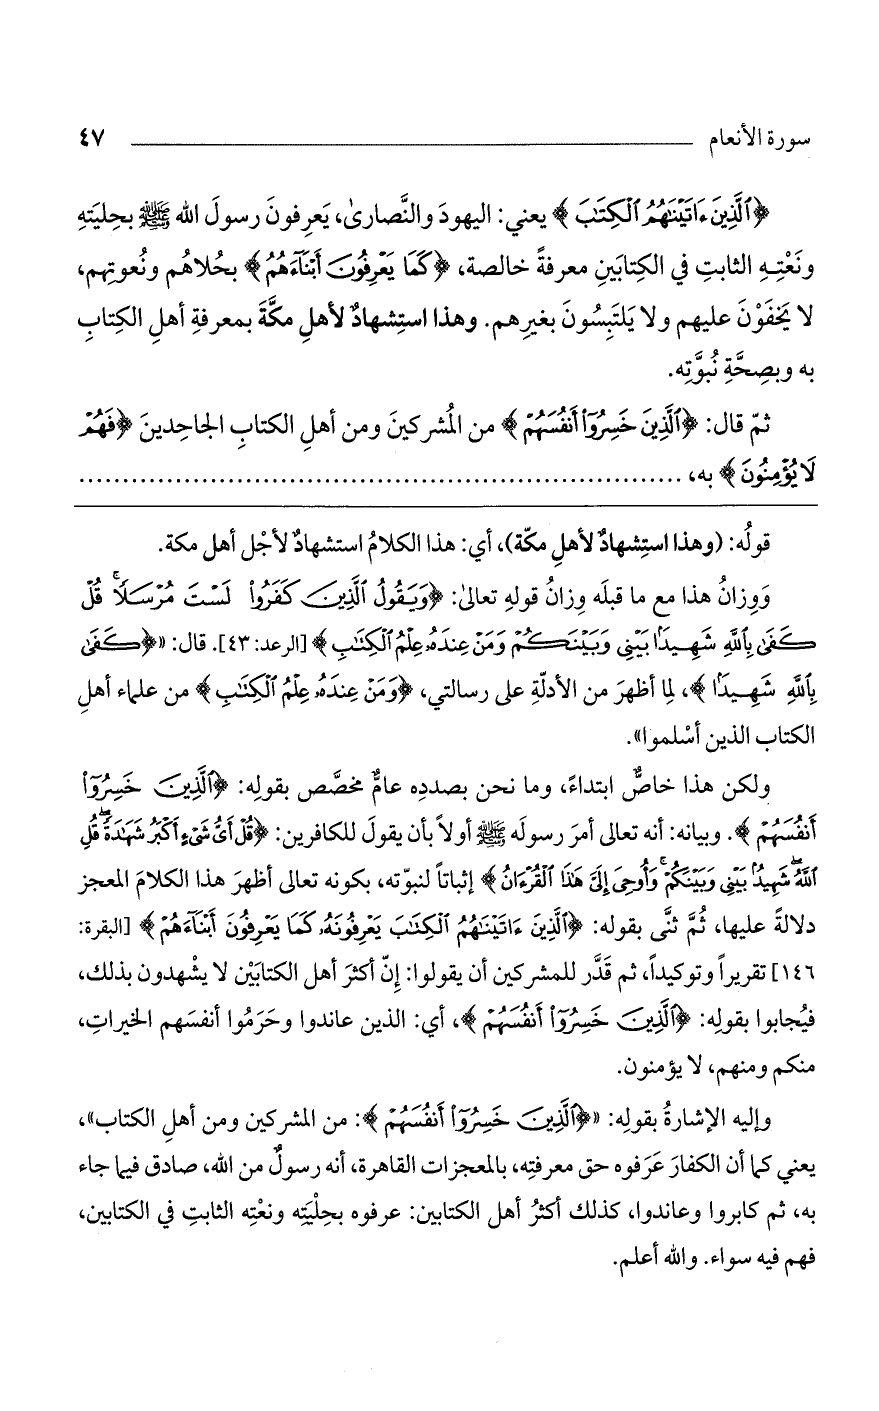 سورة الأنعام ٤٧
﴿ٱلَّذِينَ ءَاتَيْنَٰهُمُ ٱلْكِتَٰبَ﴾ يعني: اليهودَ والنَّصارىٰ، يَعرِفونَ رسولَ الله ﷺ بحِليَتِهِ
ونَعْتِـهِ الثابتِ في الكِتابَينِ معرفةً خالصة، ﴿كَمَا يَعْرِفُونَ أَبْنَآءَهُمُ﴾ بحُلاهُم ونُعوتِهم،
لا يَخفَوْنَ عليهم ولا يَلتَبِسُونَ بغيرِهم. وهذا استِشهادٌ لأهلِ مكَّةَ بمعرفةِ أهلِ الكِتابِ
به وبصِحَّةِ نُبوَّتِه.
ثمّ قال: ﴿ٱلَّذِينَ خَسِرُوٓا۟ أَنفُسَهُمْ﴾ من المُشركينَ ومن أهلِ الكتابِ الجاحِدينَ ﴿فَهُمْ
لَا يُؤْمِنُونَ﴾ به، ........................................................................
قولُه: (وهذا استِشهادٌ لأهلِ مكّة)، أي: هذا الكلامُ استشهادٌ لأجْل أهل مكة.
وَوِزانُ هذا مع ما قبلَه وِزانُ قولِهِ تعالىٰ: ﴿وَيَقُولُ ٱلَّذِينَ كَفَرُوا۟ لَسْتَ مُرْسَلًا ۚ قُلْ
كَفَىٰ بِٱللَّهِ شَهِيدًۢا بَيْنِى وَبَيْنَكُمْ وَمَنْ عِندَهُۥ عِلْمُ ٱلْكِتَٰبِ﴾ [الرعد: ٤٣]. قال: «﴿كَفَىٰ
بِٱللَّهِ شَهِيدًۢا﴾، لِما أظهرَ من الأدلّةِ على رسالتي، ﴿وَمَنْ عِندَهُۥ عِلْمُ ٱلْكِتَٰبِ﴾ من علماء أهلِ
الكتاب الذين أسْلموا».
ولكن هذا خاصٌّ ابتداءً، وما نحن بصددِه عامٌّ مخصَّص بقولِه: ﴿ٱلَّذِينَ خَسِرُوٓا۟
أَنفُسَهُمْ﴾. وبيانه: أنه تعالى أمرَ رسولَه ﷺ أولاً بأن يقولَ للكافرين: ﴿قُلْ أَىُّ شَىْءٍ أَكْبَرُ شَهَٰدَةً ۖ قُلِ
ٱللَّهُ ۖ شَهِيدٌۢ بَيْنِى وَبَيْنَكُمْ ۚ وَأُوحِىَ إِلَىَّ هَٰذَا ٱلْقُرْءَانُ﴾ إثباتاً لنبوّته، بكونه تعالى أظهرَ هذا الكلامَ المعجز
دلالةً عليها، ثُمَّ ثنَّى بقوله: ﴿ٱلَّذِينَ ءَاتَيْنَٰهُمُ ٱلْكِتَٰبَ يَعْرِفُونَهُۥ كَمَا يَعْرِفُونَ أَبْنَآءَهُمْ﴾ [البقرة:
١٤٦] تقريراً وتوكيداً، ثم قَدَّر للمشركين أن يقولوا: إنّ أكثرَ أهل الكتابَيْن لا يشْهدون بذلك،
فيُجابوا بقولِه: ﴿ٱلَّذِينَ خَسِرُوٓا۟ أَنفُسَهُمْ﴾، أي: الذين عاندوا وحَرَمُوا أنفسَهم الخيراتِ،
منكم ومنهم، لا يؤمنون.
وإليه الإشارةُ بقولِه: «﴿ٱلَّذِينَ خَسِرُوٓا۟ أَنفُسَهُمْ﴾: من المشركين ومن أهلِ الكتاب»،
يعني كما أن الكفارَ عَرَفوه حق معرفتِه، بالمعجزات القاهرة، أنه رسولٌ من الله، صادق فيما جاء
به، ثم كابروا وعاندوا، كذلك أكثرُ أهل الكتابين: عرفوه بحِلْيَتِه ونعْتِه الثابتِ في الكتابين،
فهم فيه سواء. والله أعلم.